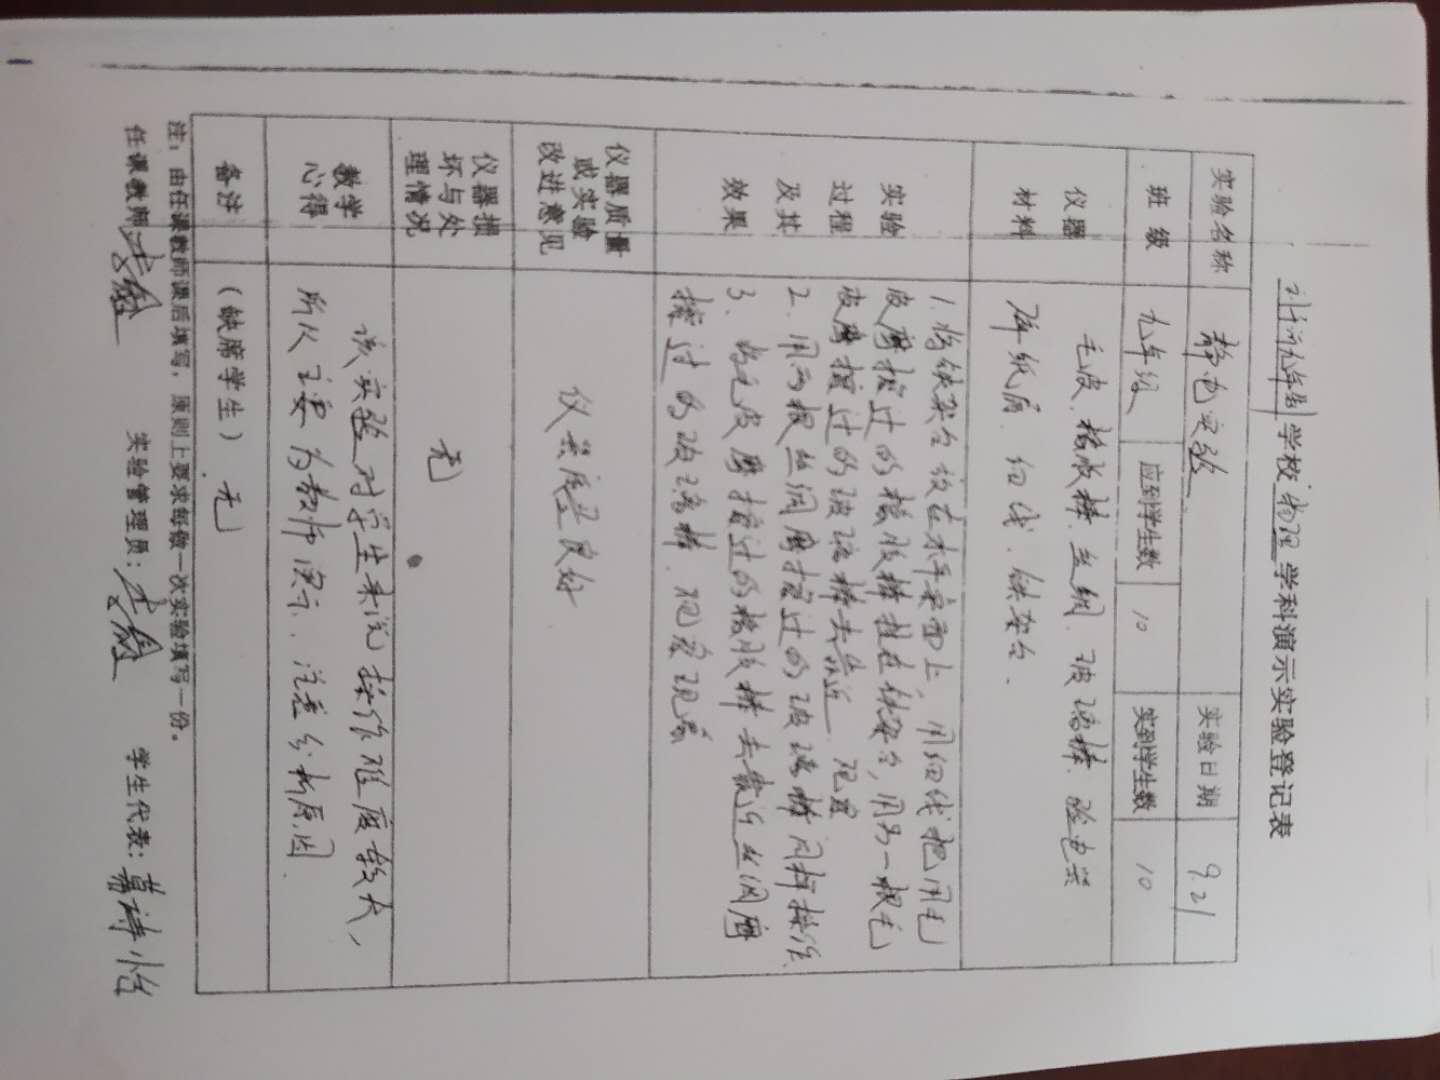 学校 物理 学科演示实验登记表
实验名称 静电实验 实验日期 9.21
班级 九年级 应到学生数 10 实到学生数 10
仪器材料 毛皮、橡胶棒、丝绸、玻璃棒、验电器
碎纸屑、细线、铁架台、
实验过程及其效果
1.将铁架台放在水平桌面上，用细线把用毛
皮摩擦过的橡胶棒挂在铁架台，用另一根毛
皮摩擦过的玻璃棒去靠近 观查
2.用两根丝绸摩擦过的玻璃棒同样操作.
3.将毛皮摩擦过的橡胶棒去靠近丝绸摩
擦过的玻璃棒，观察现象
仪器质量或实验改进意见 仪器质量良好
仪器损坏与处理情况 无
教学心得 该实验对学生来说操作难度较大，
所以主要为教师演示、注意分析原因
备注 （缺席学生） 无
注：由任课教师课后填写，原则上要求每做一次实验填写一份。
任课教师 实验管理员： 学生代表：诗怡